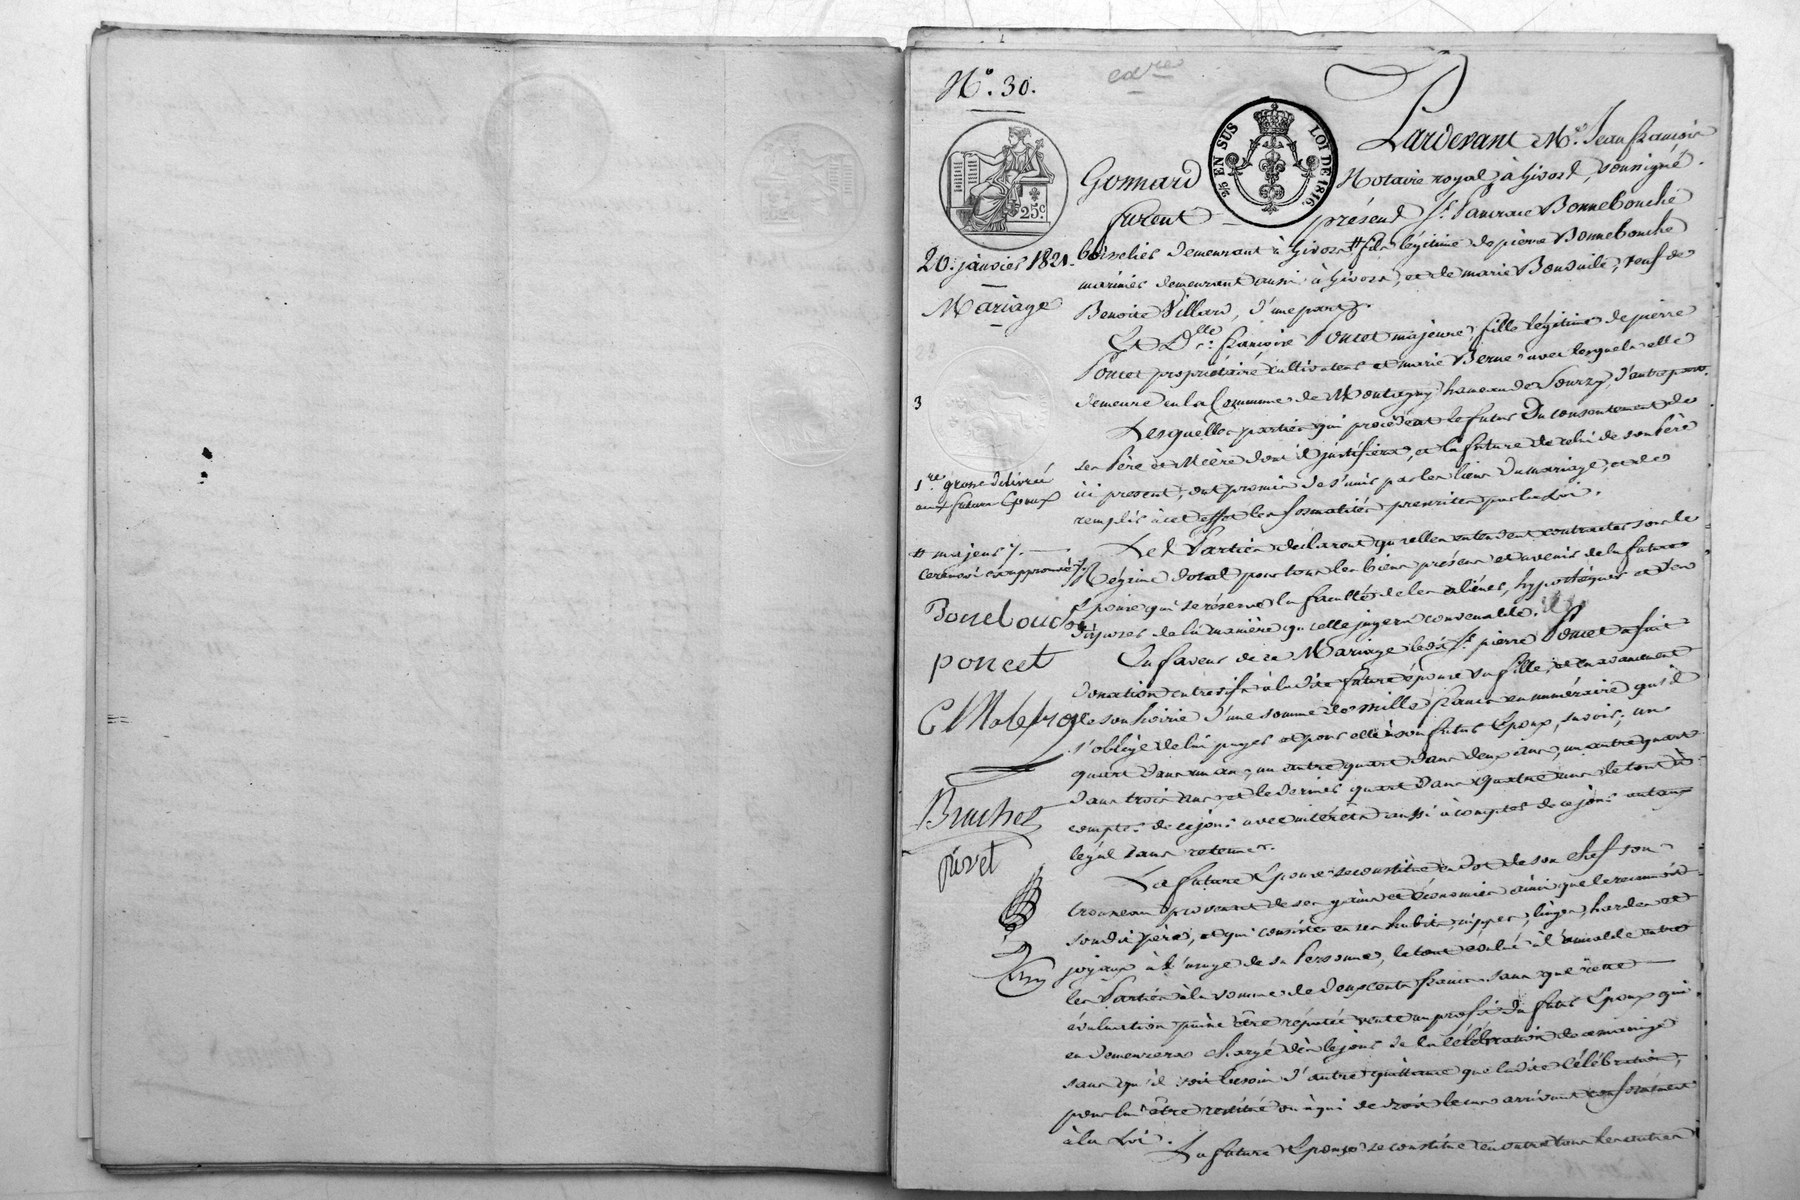 N.° 30.
25c
EN SUS LOI DE 1816.
20. janvier 1821.
Mariage
3
1.re grosse délivrée
aux futurs Epoux
# majeur /.
Bonnebouche
poncet
Bruchet
pivet
Pardevant M.e Jean françois
Gonnard Notaire royal, à Givors, soussigné.
furent présens S.r Pancrace Bonnebouche
demeurant à Givors # fils légitime de pierre Bonnebouche
marinier demeurant aussi à Givors, et de marie, veuf de
Benoite Villard, d'une part
Et D.lle françoise Poncet majeure, fille légitime de pierre
Poncet propriétaire cultivateur et marie Berne avec lesquels elle
demeure en la Commune de Montagny hameau de Sourzy, d'autre part.
Lesquelles parties qui procèdent le futur du consentement de
ses Père et Mère dont il justifiera, et la future de celui de son Père
ici présent, ont promis de s'unir par les liens du mariage, et de
remplir à cet effet les formalités prescrites par la Loi.
Les Parties déclarent qu'elles entendent contracter sous le
Régime dotal pour tous les biens présens et avenir de la future
Epouse qui se réserve la faculté de les aliéner, hypothéquer et d'en
disposer de la manière qu'elle jugera convenable.
En faveur de ce Mariage led. S.r pierre Poncet a fait
donation entrevifs à ladite future épouse sa fille, et en avancement
de son hoirie d'une somme de Mille francs en numéraire qu'il
s'oblige de lui payer et pour elle à son futur Epoux, savoir, un
quart dans un an, un autre quart dans deux ans, un autre quart
dans trois ans et le dernier quart dans quatre ans le tout à
compter de ce jour avec intérêts aussi à compter de ce jour au taux
légal sans retenue.
La future Epouse se constitue en dot de son chef son
trousseau provenant de ses gains et économies ainsi que le reconnoit
sondit père, et qui consiste en ses habits, nippes, linges, hardes et
joyaux à l'usage de sa Personne, le tout évalué à l'amiable entre
les Parties à la somme de deux cents francs sans que cette
évaluation puisse être réputée vente au profit du futur Epoux qui
en demeurera chargé dès le jour de la célébration de ce mariage
sans qu'il soit besoin d'autre quittance que ladite célébration,
pour lui être restitué ou à qui de droit le cas arrivant conformément
à la Loi.
La future Epouse se constitue en outre tous